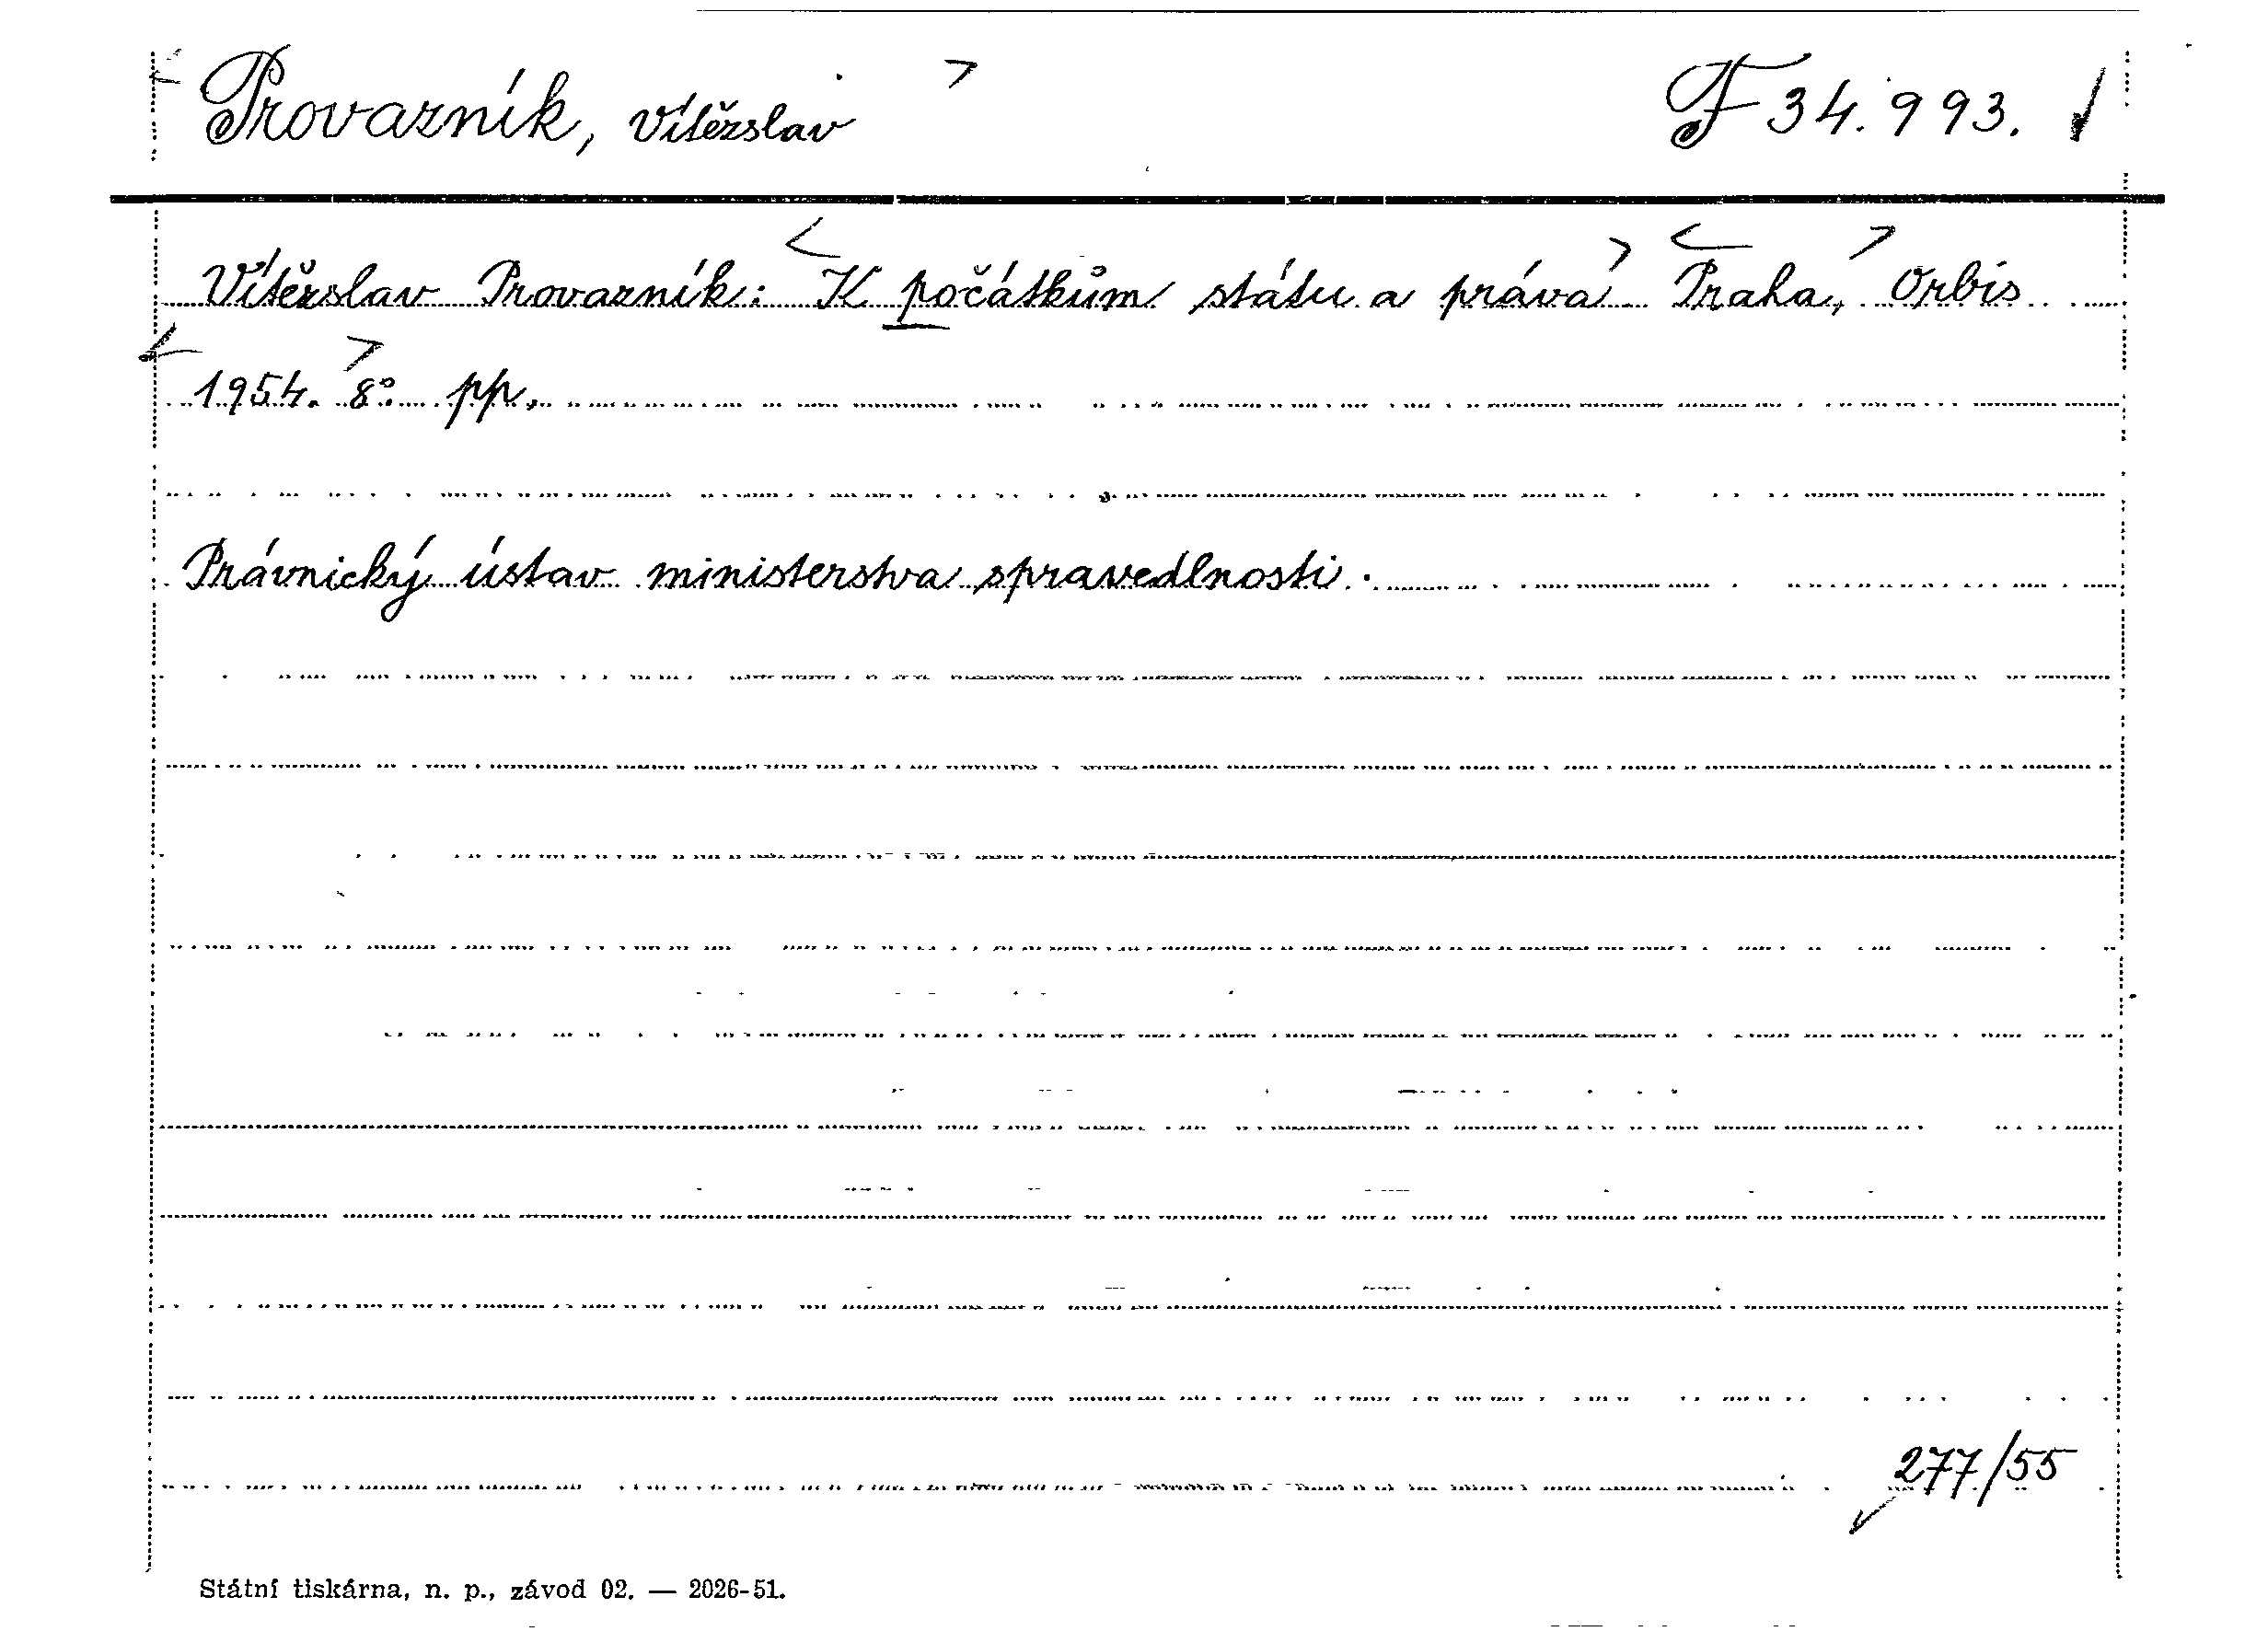 Provazník, Vítězslav F 34.993.
Vítězslav Provazník: K počátkům státu a práva Praha, Orbis
1954. 8°. pp.
Právnický ústav ministerstva spravedlnosti.
277/55
Státní tiskárna, n. p., závod 02. — 2026-51.